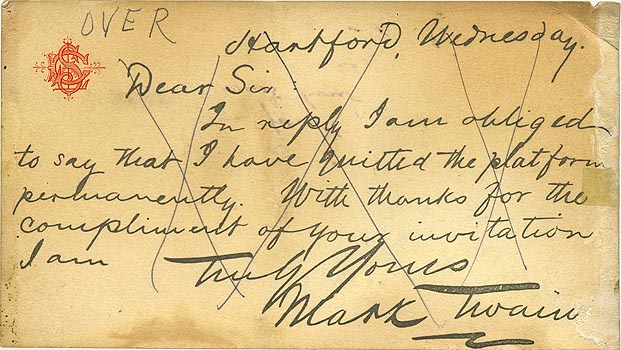 OVER
Hartford, Wednesday.
Dear Sir:
In reply I am obliged
to say that I have quitted the platform
permanently. With thanks for the
compliment of your invitation
I am
Truly Yours
Mark Twain